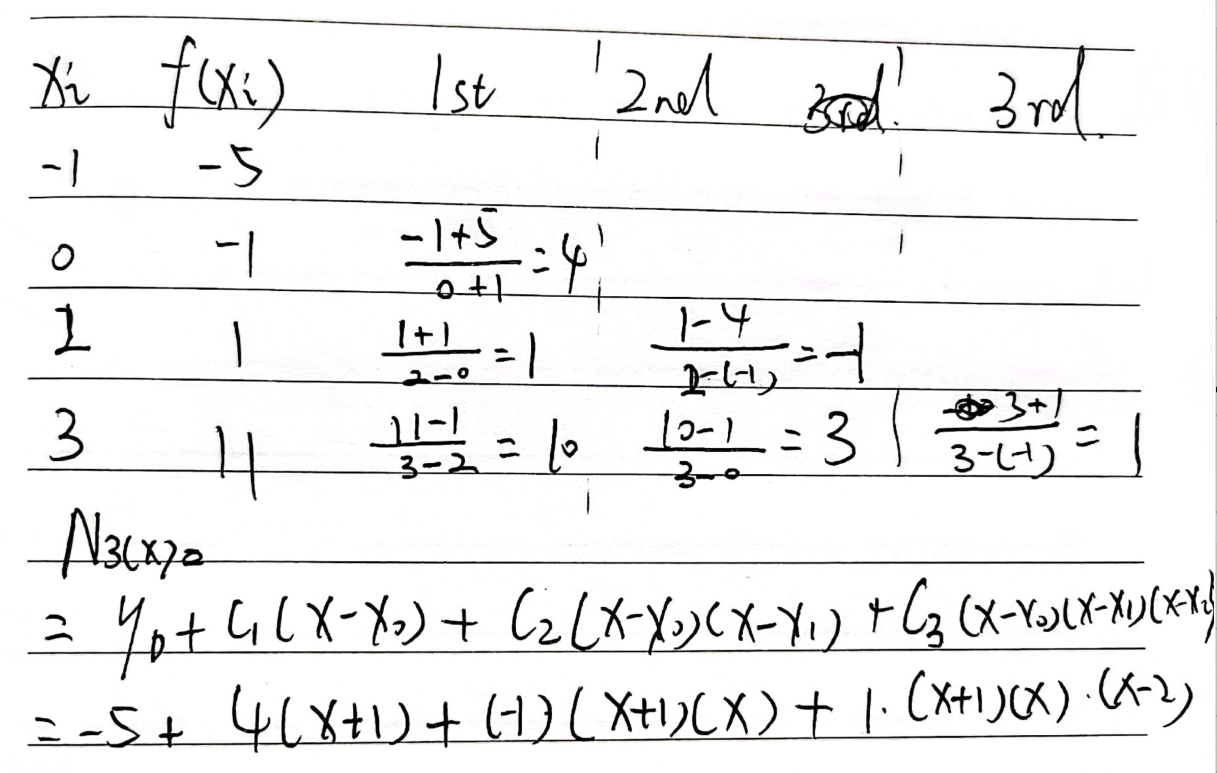 xi f(xi) 1st 2nd 3rd.
-1 -5
0 -1 (-1+5)/(0+1) = 4
2 1 (1+1)/(2-0) = 1 (1-4)/(2-(-1)) = -1
3 11 (11-1)/(3-2) = 10 (10-1)/(3-0) = 3 (3+1)/(3-(-1)) = 1
N3(x)=
= y0 + C1(x-x0) + C2(x-x0)(x-x1) + C3(x-x0)(x-x1)(x-x2)
= -5 + 4(x+1) + (-1)(x+1)(x) + 1·(x+1)(x)·(x-2)